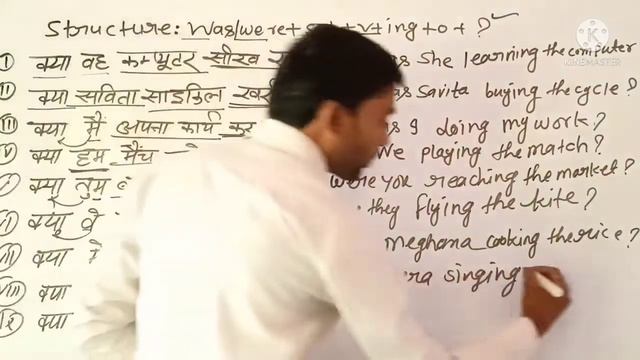 Structure: Was/were + sub + v + ing + o + ?
I क्या वह कम्प्यूटर सीख she learning the computer
II क्या सविता साइकिल खरी as savita buying the cycle?
III क्या मैं अपना कार्य कर as I doing my work?
क्या हम मैंच we playing the match?
क्या तुम were you reaching the market?
VI क्या वे they flying the kite?
VII क्या meghana cooking the rice?
VIII क्या singing
क्या
KINEMASTER